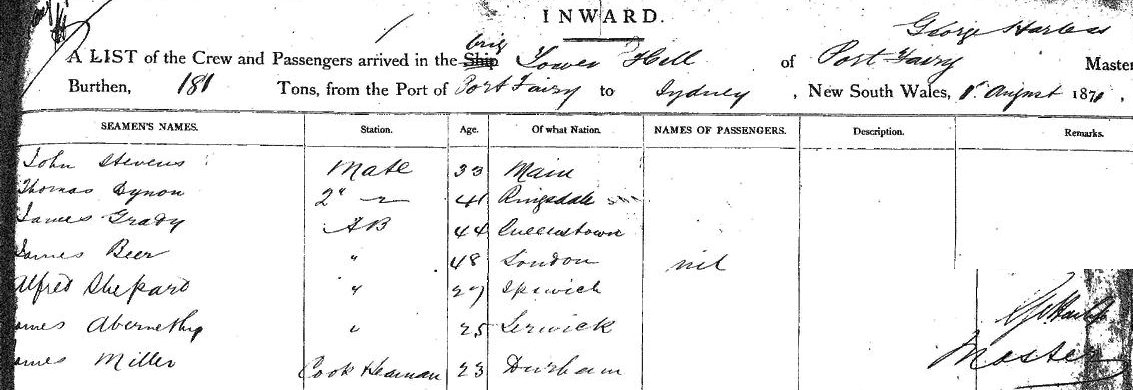 INWARD.
George Harless
A LIST of the Crew and Passengers arrived in the Ship brig Tower Hill of Port Fairy Master
Burthen, 181 Tons, from the Port of Port Fairy to Sydney, New South Wales, 1st August 1871,
SEAMEN'S NAMES. Station. Age. Of what Nation. NAMES OF PASSENGERS. Description. Remarks.
John Stevens Mate 33 Main
Thomas Dynon 2" 41 Ringsdale
James Grady AB 44 Queenstown
James Beer " 48 London nil
Alfred Shepard " 27 Ipswich
James Abernethy " 25 Lerwick
James Miller Cook 23 Durham
Master